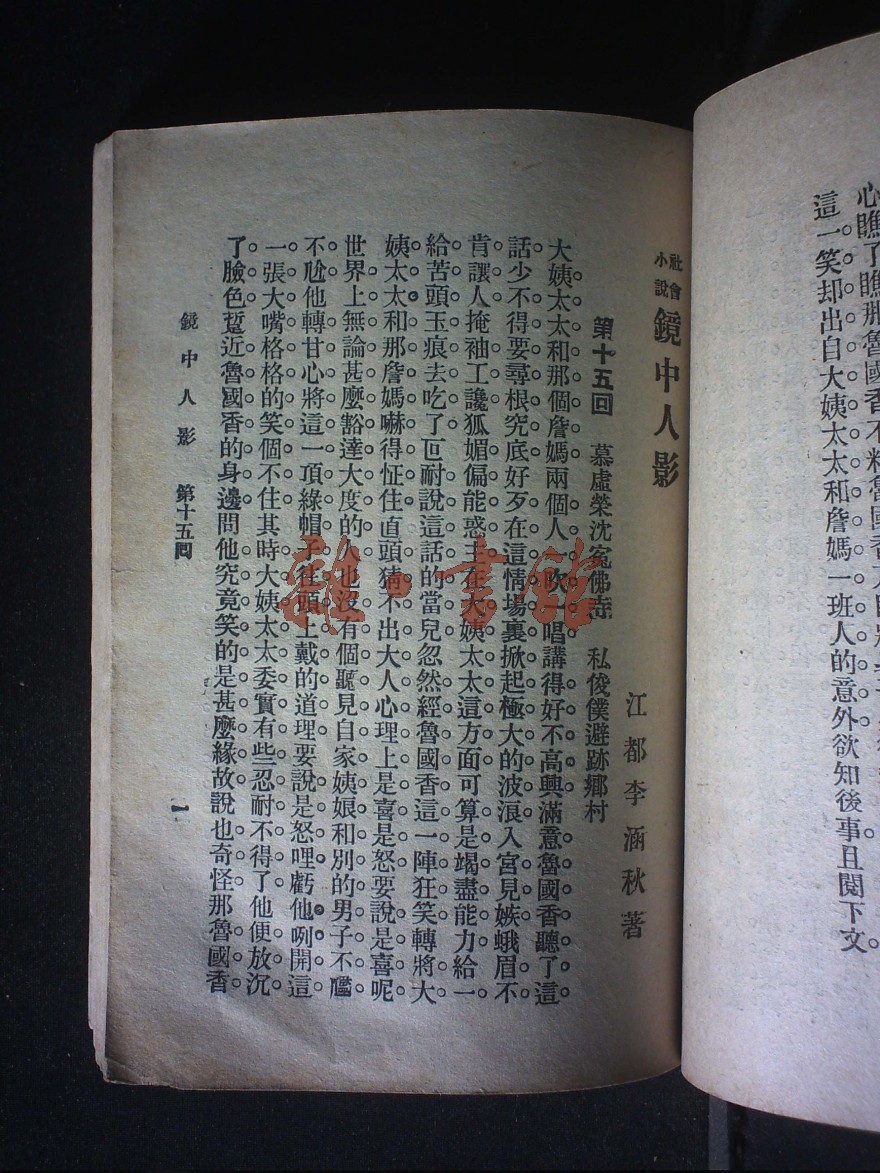 心瞧了瞧那魯國香不料魯國香
這一笑却出自大姨太太和詹媽一班人的意外欲知後事且閱下文
社會小說 鏡中人影
江都李涵秋著
第十五回 慕虛榮沈寃佛寺 私俊僕避跡鄉村
大姨太太和那個詹媽兩個人一吹一唱講得好不高興滿意魯國香聽了這
話少不得要尋根究底好歹在這情場裏掀起極大的波浪入宮見嫉蛾眉不
肯讓人掩袖工讒狐媚偏能惑主在大姨太太這方面可算是竭盡能力給一
給苦頭玉痕去吃了叵耐說這話的當兒忽然經魯國香這一陣狂笑轉將大
姨太太和那詹媽嚇得怔住直頭猜不出大人心理上是喜是怒要說是喜呢
世界上無論甚麼豁達大度的人也沒有個聽見自家姨娘和別的男子不尷
不尬他轉甘心將這一項綠帽子往頭上戴的道理要說是怒哩虧他咧開這
一張大嘴格格的笑個不住其時大姨太太委實有些忍耐不得了他便放沉
了臉色踅近魯國香的身邊問他究竟笑的是甚麼緣故說也奇怪那魯國香
鏡中人影 第十五回 一
雜·書館